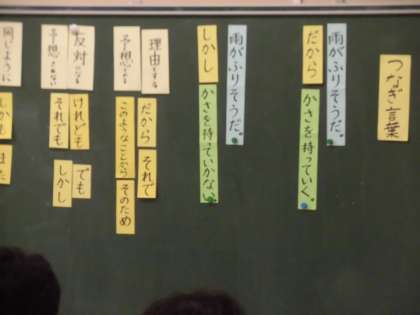 つなぎ言葉
雨がふりそうだ。
だから
かさを持っていく。
雨がふりそうだ。
しかし
かさを持っていかない。
理由をする
予想できる
だから
それで
このようなことから
そのため
反対になる
予想できない
けれども
それでも
でも
しかし
同じように
しかも
また